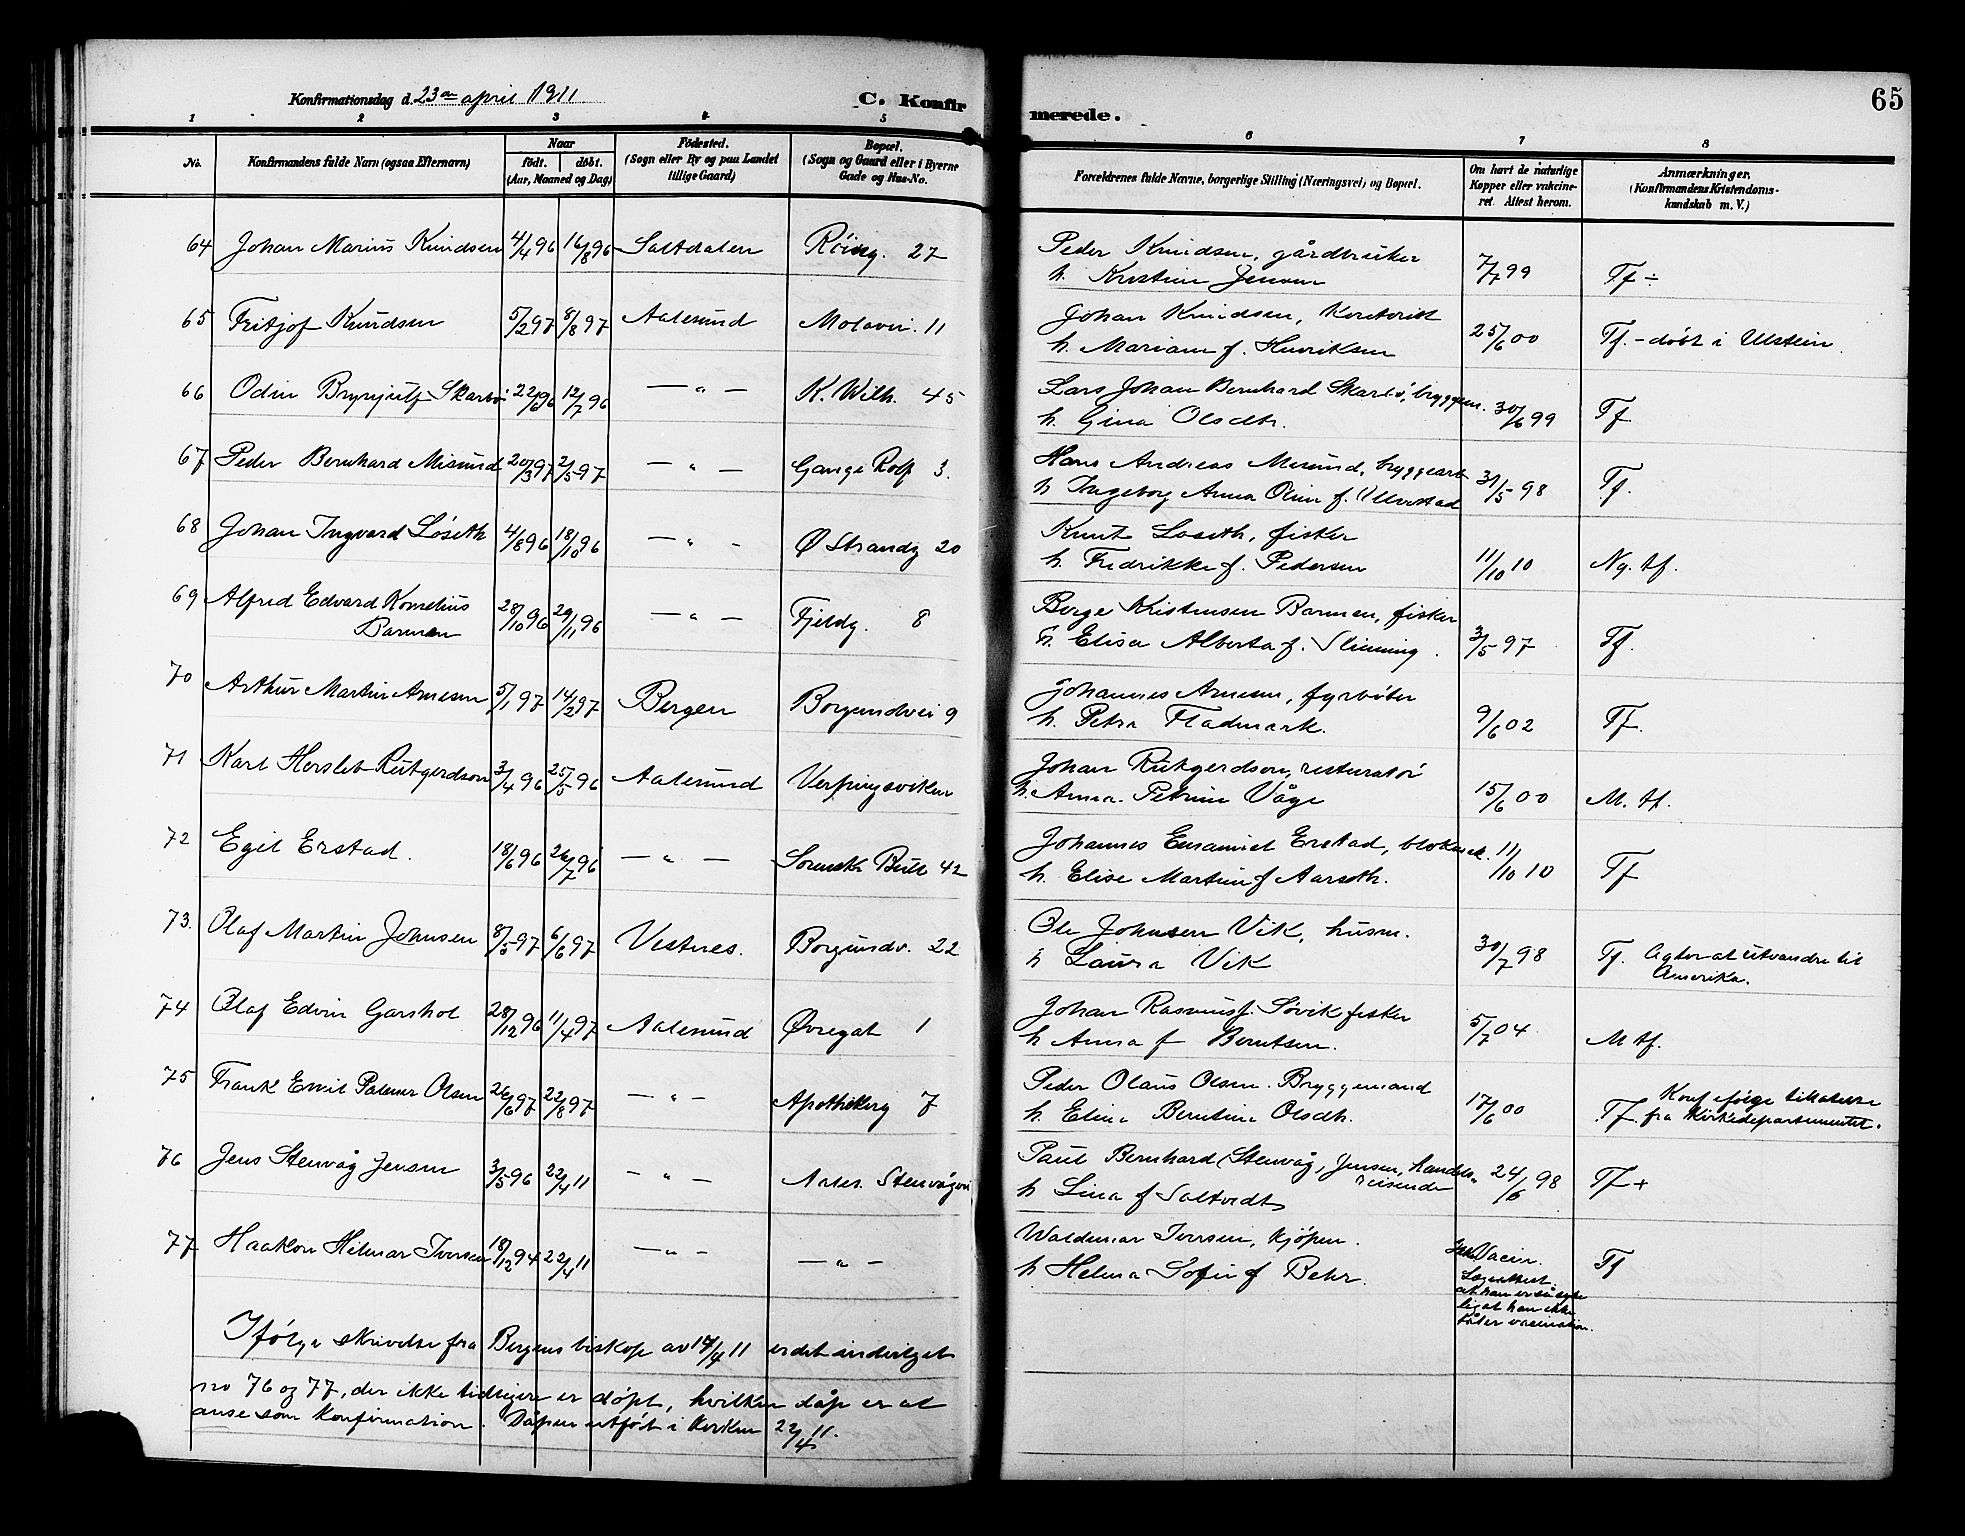 65
Konfirmationsdag d. 23de april 1911
C. Konfirmerede.
1 2 3 4 5 6 7 8
No.
Konfirmandens fulde Navn (ogsaa Efternavn)
Naar
født. døbt.
(Aar, Maaned og Dag)
Fødested.
(Sogn eller By og paa Landet
tillige Gaard)
Bopæl.
(Sogn og Gaard eller i Byerne
Gade og Hus-No.
Forældrenes fulde Navne, borgerlige Stilling (Næringsvei) og Bopæl.
Om havt de naturlige
Kopper eller vakcine-
ret. Attest herom.
Anmærkninger,
(Konfirmandens Kristendoms-
kundskab m. V.)
64 Johan Marius Knudsen 4/4 96 16/8 96 Saltdalen Röisg. 27 Peder Knudsen, gårdbruker
h. Kristine Jensen 7/7 99 Tf ÷
65 Fritjof Knudsen 5/2 97 8/8 97 Aalesund Molovei. 11 Johan Knudsen, Kontorist
h. Mariane f. Henriksen 25/6 00 Tf. - döbt i Ulstein.
66 Odin Brynjulf Skarbö 22/6 96 12/7 96 — " — K. Wilh. 45 Lars Johan Bernhard Skarbö, bryggem.
h. Gina Olsdtr. 30/6 99 Tf.
67 Peder Bernhard Misund 20/3 97 2/5 97 — " — Gange Rolf 3. Hans Andreas Misund, bryggearb
h Ingeborg Anna Oline f. Ulvestad 31/5 98 Tf.
68 Johan Ingvard Löseth 4/8 96 18/10 96 — " — Ø Strandg 20 Knut Löseth, fisker
h. Fredrikke f. Pedersen 11/10 10 Ng. tf.
69 Alfred Edvard Kornelius
Barmen 28/10 96 29/11 96 — " — Fjeldg. 8 Børge Kristensen Barmen, fisker
h. Elisa Alberta f. Slinning. 3/5 97 Tf.
70 Arthur Martin Arnesen 5/1 97 14/2 97 Bergen Borgundvei 9 Johannes Arnesen, fyrböter
h. Petra Fladmark. 9/6 02 Tf.
71 Karl Herslet Rütgerdson 3/4 96 25/5 96 Aalesund Verpingsviken Johan Rütgerdson, resturatör
h. Anna Petrine Våge 15/6 00 M. tf.
72 Egil Erstad. 18/6 96 26/7 96 — " — Sorenskr Bull 42 Johannes Emanuel Erstad, bloksk. 
h. Elise Martine f Aarseth. 11/10 10 Tf
73. Olaf Martin Johnsen 8/5 97 6/6 97 Vestnes. Borgundv. 22 Ole Johnsen Vik, husm.
h Laura Vik 30/7 98 Tf. Agter at utvandre til
Amerika.
74 Olaf Edvin Garshol 28/12 96 11/4 97 Aalesund Øvregat 1 Johan Rasmus f. Sövik fisker
h Anna f Berntsen. 5/7 04 M tf.
75 Frank Emil Palmer Olsen 26/6 97 22/8 97 — " — Apothekerg 7 Peder Olaus Olsen. Bryggemand
h. Elina Berntina Olsdtr. 17/6 00 Tf. Konf ifølge tilladelse
fra Kirkedepartementet.
76 Jens Stenvåg Jensen 3/5 96 22/4 11 — " — Aales. Stenvågvei Paul Bernhard Stenvåg, Jensen, handels-
reisende
h Lina f Saltvedt 24/6 98 Tf +
77 Haakon Hilmar Iversen 18/12 94 22/4 11 — " — — " — Waldemar Iversen, kjöpm.
h Helma Sofie f Behr. Ikke Vaccin.
Lægeattest
at han er så syke
lig at han ikke
tåler vaccination. Tf
Ifölge skrivelse fra Bergens biskop av 17/4 11 er det indvilget
no 76 og 77, der ikke tidligere er döpt, hvilken dåp er at
anse som konfirmation. Dåpen utfört i kirken 22/4 11.